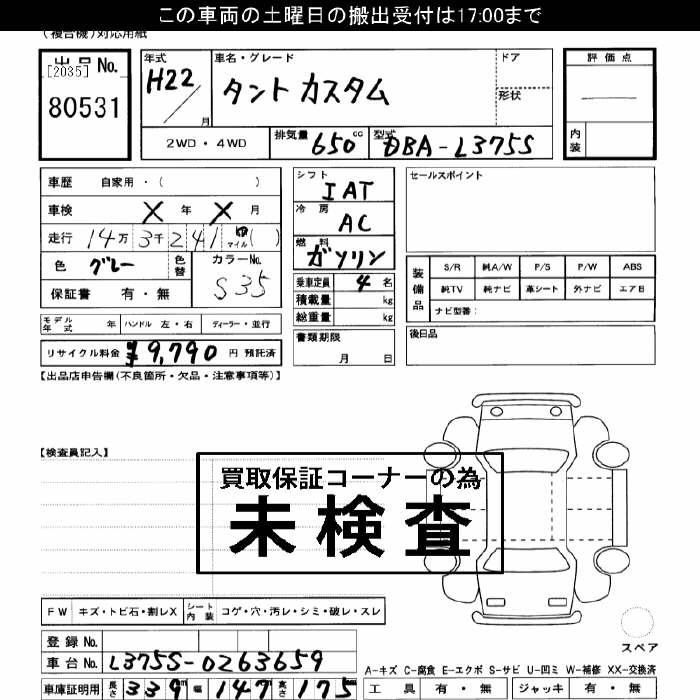 この車両の土曜日の搬出受付は17:00まで
(複合機)対応用紙
出品 No.
[2035]
80531
年式
H22
月
車名・グレード
タントカスタム
ドア
形状
評価点
内装
2WD・4WD
排気量 650 cc
型式 DBA-L375S
車歴 自家用・( )
車検 X 年 X 月
走行 14万 3千 2 4 1 マイル ( )
色 グレー
色替
カラーNo. S35
保証書 有・無
シフト
IAT
冷房
AC
燃料
ガソリン
乗車定員 4 名
積載量 kg
総重量 kg
セールスポイント
装備品
S/R 純A/W P/S P/W ABS
純TV 純ナビ 革シート 外ナビ エアB
ナビ型番:
モデル年式 年 ハンドル 左・右 ディーラー・並行
リサイクル料金 ¥9,790 円 預託済
書類期限
月 日
後日品
【出品店申告欄(不良箇所・欠品・注意事項等)】
【検査員記入】
買取保証コーナーの為
未検査
FW キズ・トビ石・割レX
シート内装 コゲ・穴・汚レ・シミ・破レ・スレ
登録 No.
車台 No. L375S-0263659
車庫証明用 長さ 339 幅 147 高さ 175
スペア
A-キズ C-腐食 E-エクボ S-サビ U-凹ミ W-補修 XX-交換済
工具 有・無 ジャッキ 有・無